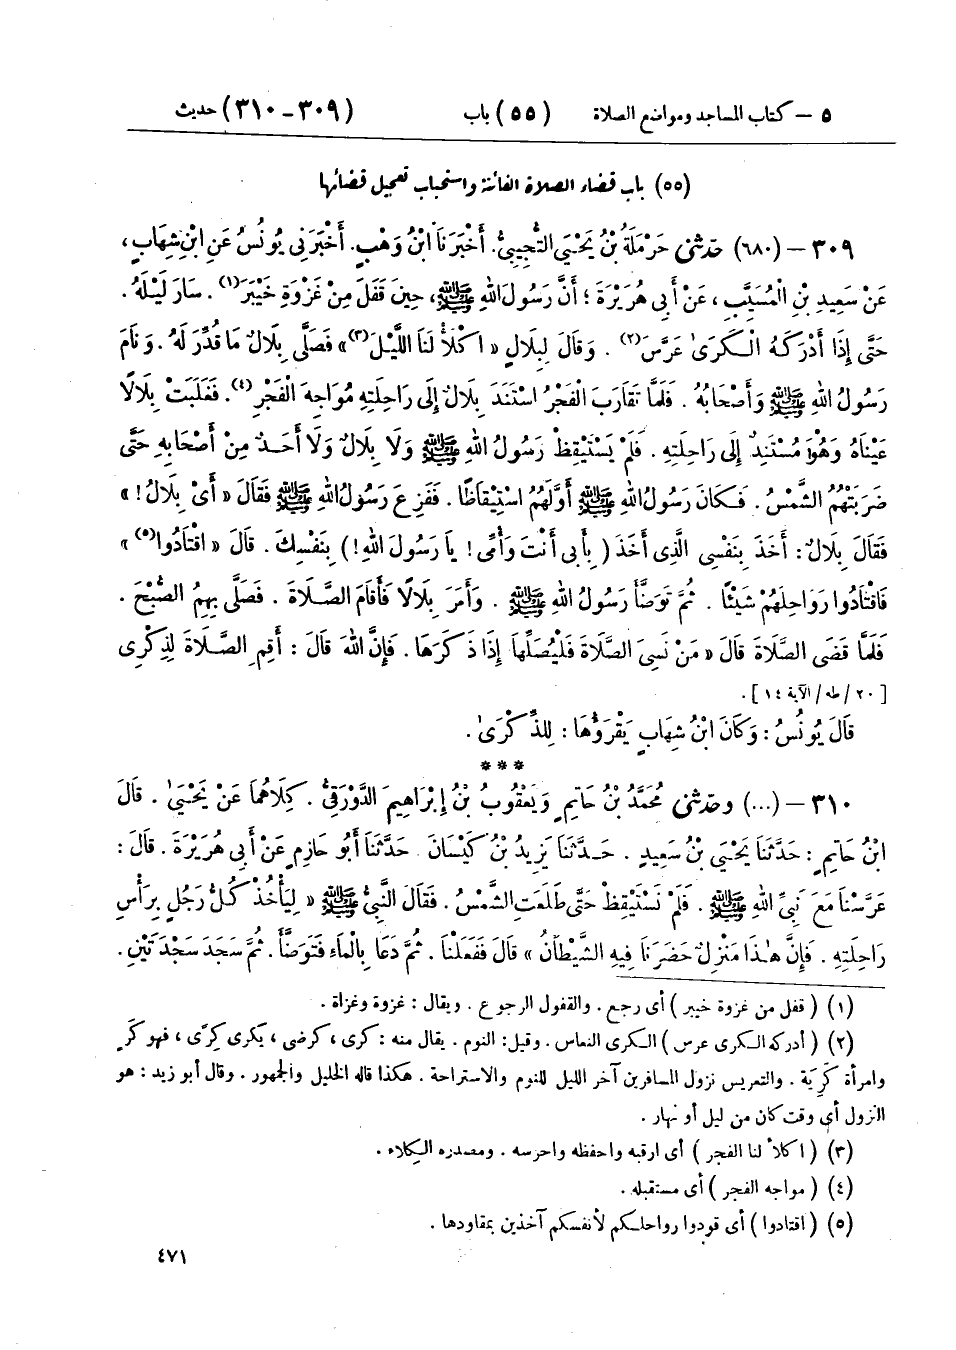 ٥ – كتاب المساجد ومواضع الصلاة (٥٥) باب (٣٠٩-٣١٠) حديث
(٥٥) باب قضاء الصلاة الفائتة واستحباب تعجيل قضائها
٣٠٩ – (٦٨٠) حَدَّثَنِي حَرْمَلَةُ بْنُ يَحْيَى التُّجِيبِيُّ. أَخْبَرَنَا ابْنُ وَهْبٍ. أَخْبَرَنِي يُونُسُ عَنِ ابْنِ شِهَابٍ،
عَنْ سَعِيدِ بْنِ الْمُسَيَّبِ، عَنْ أَبِي هُرَيْرَةَ؛ أَنَّ رَسُولَ اللهِ ﷺ، حِينَ قَفَلَ مِنْ غَزْوَةِ خَيْبَرَ(١). سَارَ لَيْلَهُ.
حَتَّى إِذَا أَدْرَكَهُ الْكَرَىٰ عَرَّسَ(٢). وَقَالَ لِبِلَالٍ « اكْلَأْ لَنَا اللَّيْلَ(٣)» فَصَلَّى بِلَالٌ مَا قُدِّرَ لَهُ. وَنَامَ
رَسُولُ اللهِ ﷺ وَأَصْحَابُهُ. فَلَمَّا تَقَارَبَ الْفَجْرُ اسْتَنَدَ بِلَالٌ إِلَى رَاحِلَتِهِ مُوَاجِهَ الْفَجْرِ(٤). فَغَلَبَتْ بِلَالًا
عَيْنَاهُ وَهُوَ مُسْتَنِدٌ إِلَى رَاحِلَتِهِ. فَلَمْ يَسْتَيْقِظْ رَسُولُ اللهِ ﷺ وَلَا بِلَالٌ وَلَا أَحَدٌ مِنْ أَصْحَابِهِ حَتَّى
ضَرَبَتْهُمُ الشَّمْسُ. فَكَانَ رَسُولُ اللهِ ﷺ أَوَّلَهُمُ اسْتِيْقَاظًا. فَفَزِعَ رَسُولُ اللهِ ﷺ فَقَالَ « أَىْ بِلَالُ! »
فَقَالَ بِلَالٌ: أَخَذَ بِنَفْسِي الَّذِي أَخَذَ ( بِأَبِي أَنْتَ وَأُمِّي! يَا رَسُولَ اللهِ! ) بِنَفْسِكَ. قَالَ « اقْتَادُوا(٥) »
فَاقْتَادُوا رَوَاحِلَهُمْ شَيْئًا. ثُمَّ تَوَضَّأَ رَسُولُ اللهِ ﷺ. وَأَمَرَ بِلَالًا فَأَقَامَ الصَّلَاةَ. فَصَلَّى بِهِمُ الصُّبْحَ.
فَلَمَّا قَضَى الصَّلَاةَ قَالَ « مَنْ نَسِيَ الصَّلَاةَ فَلْيُصَلِّهَا إِذَا ذَكَرَهَا. فَإِنَّ اللهَ قَالَ: أَقِمِ الصَّلَاةَ لِذِكْرِي
[ ٢٠ / طه / الآية ١٤ ].
قَالَ يُونُسُ: وَكَانَ ابْنُ شِهَابٍ يَقْرَؤُهَا: لِلذِّكْرَىٰ.
***
٣١٠ – (...) وحَدَّثَنِي مُحَمَّدُ بْنُ حَاتِمٍ وَيَعْقُوبُ بْنُ إِبْرَاهِيمَ الدَّوْرَقِيُّ. كِلَاهُمَا عَنْ يَحْيَىٰ. قَالَ
ابْنُ حَاتِمٍ: حَدَّثَنَا يَحْيَى بْنُ سَعِيدٍ. حَدَّثَنَا يَزِيدُ بْنُ كَيْسَانَ حَدَّثَنَا أَبُو حَازِمٍ عَنْ أَبِي هُرَيْرَةَ. قَالَ:
عَرَّسْنَا مَعَ نَبِيِّ اللهِ ﷺ. فَلَمْ نَسْتَيْقِظْ حَتَّى طَلَعَتِ الشَّمْسُ. فَقَالَ النَّبِيُّ ﷺ « لِيَأْخُذْ كُلُّ رَجُلٍ بِرَأْسِ
رَاحِلَتِهِ. فَإِنَّ هٰذَا مَنْزِلٌ حَضَرَنَا فِيهِ الشَّيْطَانُ » قَالَ فَفَعَلْنَا. ثُمَّ دَعَا بِالْمَاءِ فَتَوَضَّأَ. ثُمَّ سَجَدَ سَجْدَتَيْنِ.
(١) ( قفل من غزوة خيبر ) أى رجع. والقفول الرجوع. ويقال: غزوة وغزاة.
(٢) ( أدركه الكرى عرس ) الكرى النعاس. وقيل: النوم. يقال منه: كرى، كرضى، يكرى كِرًى، فهو كَرٍ
وامرأة كَرِيَة. والتعريس نزول المسافرين آخر الليل للنوم والاستراحة. هكذا قاله الخليل والجمهور. وقال أبو زيد: هو
النزول أى وقت كان من ليل أو نهار.
(٣) ( اكلأ لنا الفجر ) أى ارقبه واحفظه واحرسه. ومصدره الكِلاء.
(٤) ( مواجه الفجر ) أى مستقبله.
(٥) ( اقتادوا ) أى قودوا رواحلكم لأنفسكم آخذين بمقاودها.
٤٧١